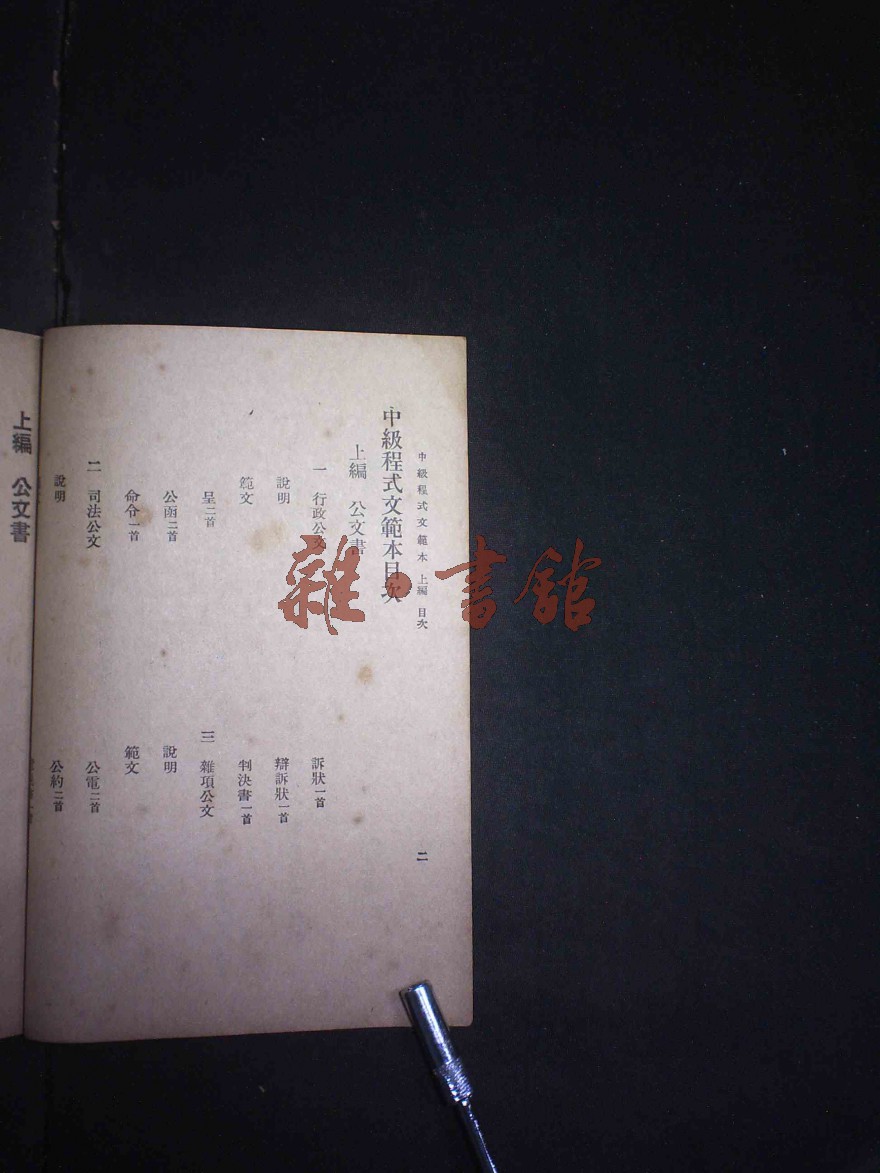 中級程式文範本 上編 目次
二
中級程式文範本目次
上編 公文書
一 行政公文
說明
範文
呈二首
公函二首
命令一首
二 司法公文
說明
訴狀一首
辯訴狀一首
判決書一首
三 雜項公文
說明
範文
公電二首
公約二首
上編 公文書
雜·書館